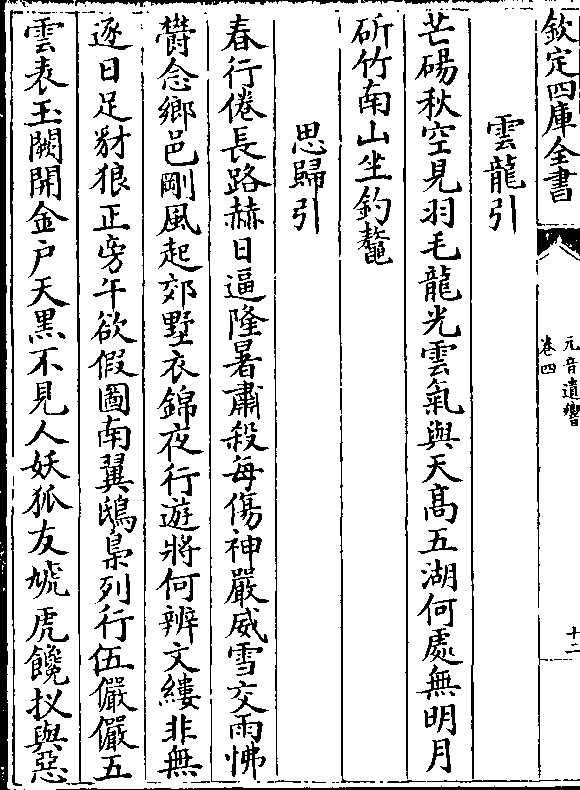 欽定四庫全書
元音遺響
卷四
十二
雲龍引
芒碭秋空見羽毛龍光雲氣與天高五湖何處無明月
斫竹南山坐釣鼇
思歸引
春行倦長路赫日逼隆暑肅殺每傷神嚴威雪交雨怫
欝念鄉邑剛風起郊墅衣錦夜行遊將何辨文縷非無
逐日足豺狼正旁午欲假圖南翼鴟梟列行伍儼儼五
雲表玉闕開金户天黑不見人妖狐友虓虎饞㧑與惡